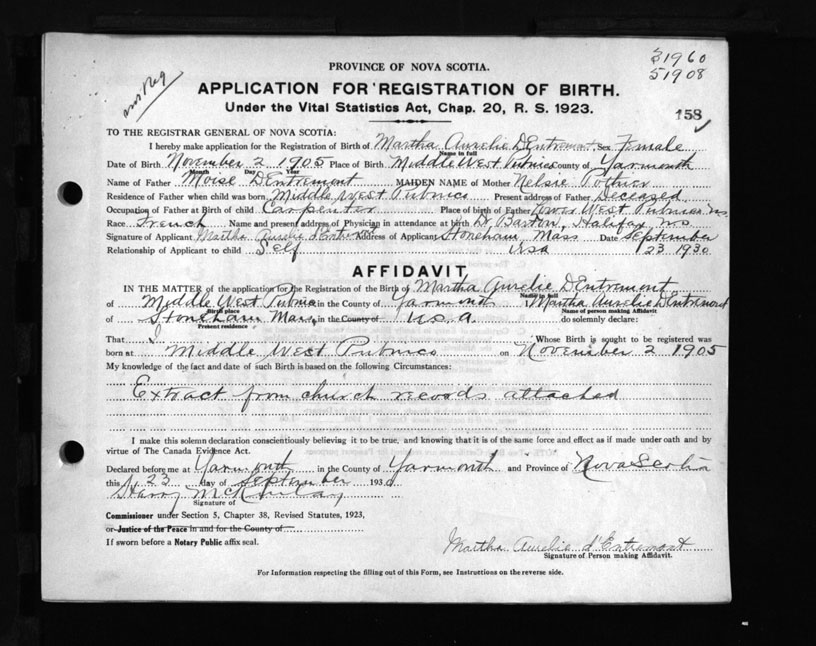 31960
51908
ans Reg
158
PROVINCE OF NOVA SCOTIA.
APPLICATION FOR REGISTRATION OF BIRTH.
Under the Vital Statistics Act, Chap. 20, R. S. 1923.
TO THE REGISTRAR GENERAL OF NOVA SCOTIA:
I hereby make application for the Registration of Birth of Martha Aurelie DEntremont Sex Female
Name in full
Date of Birth November 2 1905 Place of Birth Middle West Pubnico County of Yarmouth
Month Day Year
Name of Father Moise DEntremont MAIDEN NAME of Mother Nelsie Pothier
Residence of Father when child was born Middle West Pubnico Present address of Father Deceased
Occupation of Father at Birth of child Carpenter Place of birth of Father Lower West Pubnico N.S
Race French Name and present address of Physician in attendance at birth Dr. Barton, Halifax NS
Signature of Applicant Martha Aurelie d'Entremont Address of Applicant Stoneham, Mass Date September
Relationship of Applicant to child Self USA 23 1930
AFFIDAVIT
IN THE MATTER of the application for the Registration of the Birth of Martha Aurelie DEntremont
Name in full
of Middle West Pubnico in the County of Yarmouth I Martha Aurelie DEntremont
Birth place Name of person making Affidavit
of Stoneham Mass, in the County of U.S.A. do solemnly declare:
Present residence
That I Whose Birth is sought to be registered was
born at Middle West Pubnico on November 2 1905
My knowledge of the fact and date of such Birth is based on the following Circumstances:
Extract from church records attached
I make this solemn declaration conscientiously believing it to be true, and knowing that it is of the same force and effect as if made under oath and by
virtue of The Canada Evidence Act.
Declared before me at Yarmouth in the County of Yarmouth and Province of Nova Scotia
this 23 day of September 1930
Harry
Signature of
Commissioner under Section 5, Chapter 38, Revised Statutes, 1923,
or Justice of the Peace in and for the County of
If sworn before a Notary Public affix seal.
Martha Aurelie d'Entremont
Signature of Person making Affidavit.
For Information respecting the filling out of this Form, see Instructions on the reverse side.